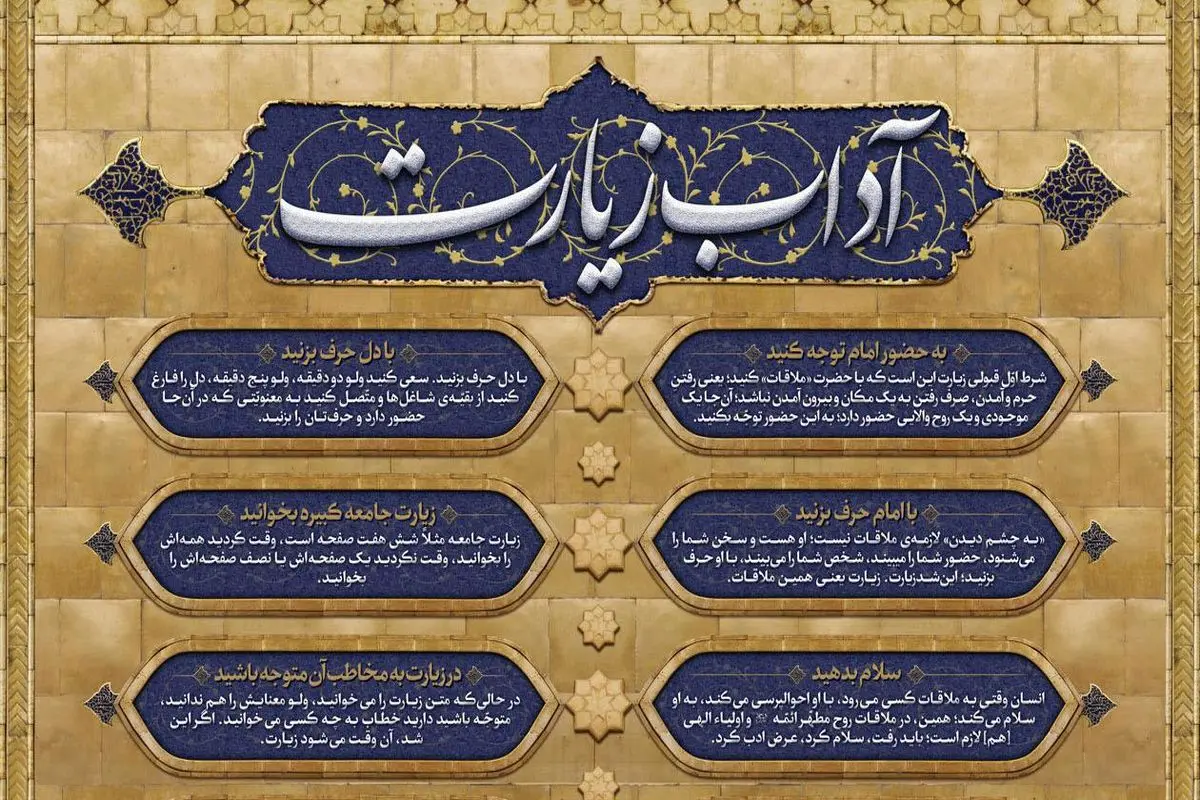 آداب زیارت
به حضور امام توجه کنید
شرط اوّل قبولی زیارت این است که با حضرت «ملاقات» کنید؛ یعنی رفتن
حرم و آمدن، صرف رفتن به یک مکان و بیرون آمدن نباشد؛ آن‌جا یک
موجودی و یک روح والایی حضور دارد؛ به این حضور توجّه بکنید.
با دل حرف بزنید
با دل حرف بزنید. سعی کنید ولو دو دقیقه، ولو پنج دقیقه، دل را فارغ
کنید از بقیّه‌ی شاغل‌ها و متّصل کنید به معنویّتی که در آن‌جا
حضور دارد و حرف‌تان را بزنید.
با امام حرف بزنید
«به چشم دیدن» لازمه‌ی ملاقات نیست؛ او هست و سخن شما را
می‌شنود، حضور شما را میبیند، شخص شما را می‌بیند، با او حرف
بزنید؛ این شد زیارت. زیارت یعنی همین ملاقات.
زیارت جامعه کبیره بخوانید
زیارت جامعه مثلاً شش هفت صفحه است، وقت کردید همه‌اش
را بخوانید، وقت نکردید یک صفحه‌اش یا نصف صفحه‌اش را
بخوانید.
سلام بدهید
انسان وقتی به ملاقات کسی می‌رود، با او احوالپرسی می‌کند، به او
سلام می‌کند؛ همین، در ملاقات روح مطهّر ائمّه و اولیاء الهی
[هم] لازم است؛ باید رفت، سلام کرد، عرض ادب کرد.
در زیارت به مخاطب آن متوجه باشید
در حالی‌که متن زیارت را می‌خوانید، ولو معنایش را هم ندانید،
متوجّه باشید دارید خطاب به چه کسی می‌خوانید. اگر این
شد، آن وقت می‌شود زیارت.